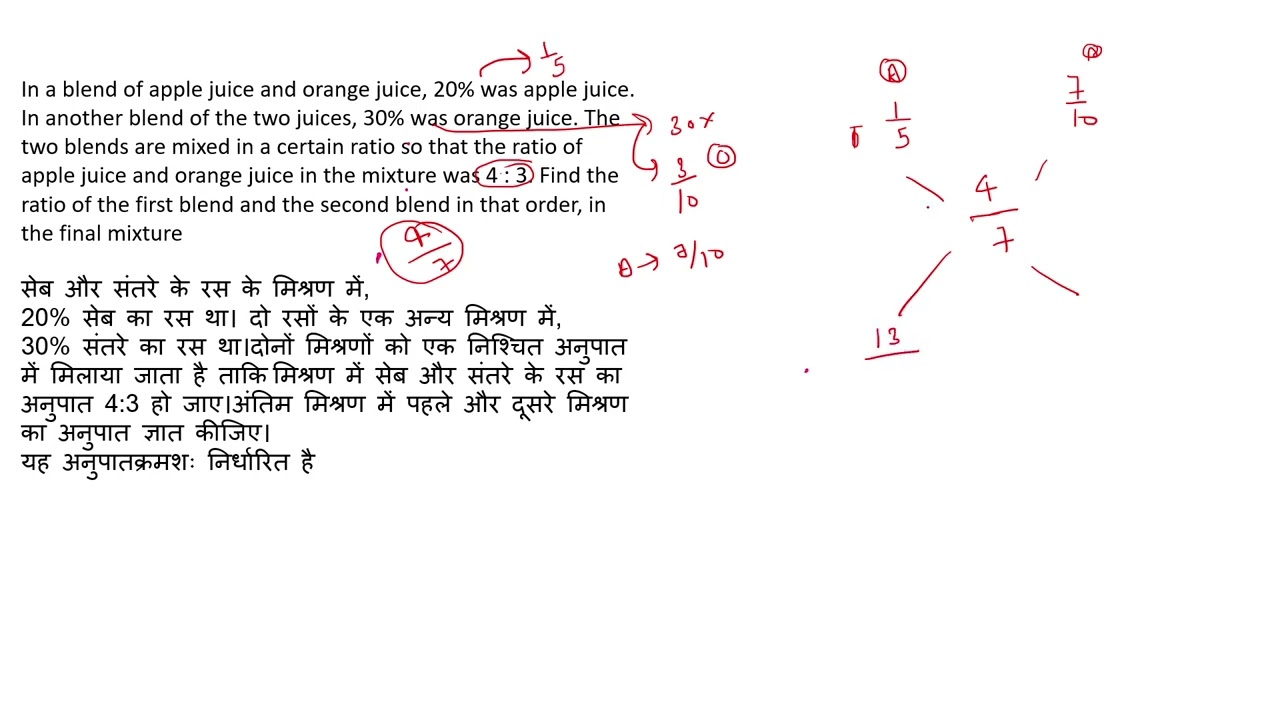 In a blend of apple juice and orange juice, 20% was apple juice.
In another blend of the two juices, 30% was orange juice. The
two blends are mixed in a certain ratio so that the ratio of
apple juice and orange juice in the mixture was 4 : 3. Find the
ratio of the first blend and the second blend in that order, in
the final mixture
सेब और संतरे के रस के मिश्रण में,
20% सेब का रस था। दो रसों के एक अन्य मिश्रण में,
30% संतरे का रस था।दोनों मिश्रणों को एक निश्चित अनुपात
में मिलाया जाता है ताकि मिश्रण में सेब और संतरे के रस का
अनुपात 4:3 हो जाए।अंतिम मिश्रण में पहले और दूसरे मिश्रण
का अनुपात ज्ञात कीजिए।
यह अनुपातक्रमशः निर्धारित है
1
5
30%
3
10
O
4
7
A → 7/10
A
1
5
I
7
10
4
7
13